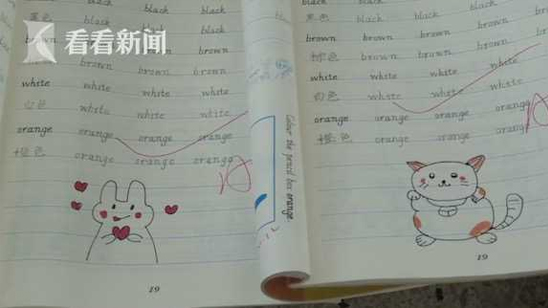 看看新闻
black black black
brown brown brown brown
brown brown brown
white white white white
白色 white white white
orange orange orange orange
橙色 orange orange orange
19
Colour the pencil box orange.
黑色 black black black
brown brown brown brown
棕色 brown brown brown
white white white white
白色 white white white
orange orange orange orange
橙色 orange orange orange
19